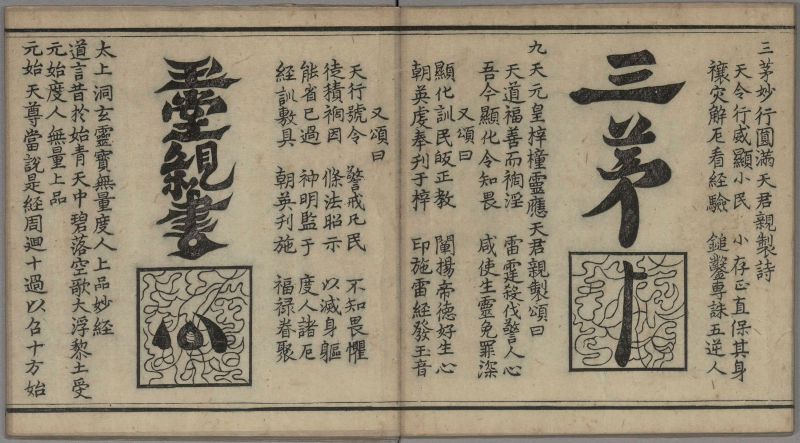 三茅妙行圓滿天君親製詩
天令行威顯小民　小存正直保其身
禳灾解厄看經驗　鎚鑿專誅五逆人
三茅
九天元皇梓橦靈應天君親製頌曰
天道福善而禍淫　雷霆殺伐警人心
吾今顯化令知畏　咸使生靈免罪深
又頌曰
顯化訓民皈正教　闡揚帝德好生心
朝英虔奉刋于梓　印施雷經發玉音
又頌曰
天行號令　警戒凡民　不知畏懼
徒積禍因　條法昭示　以滅身軀
能省已過　神明監于　度人諸厄
經訓敷具　朝英刋施　福禄眷聚
玉堂親書
太上洞玄靈寶無量度人上品妙經
道言昔於始青天中碧落空歌大浮黎土受
元始度人無量上品
元始天尊當說是經周迴十過以召十方始